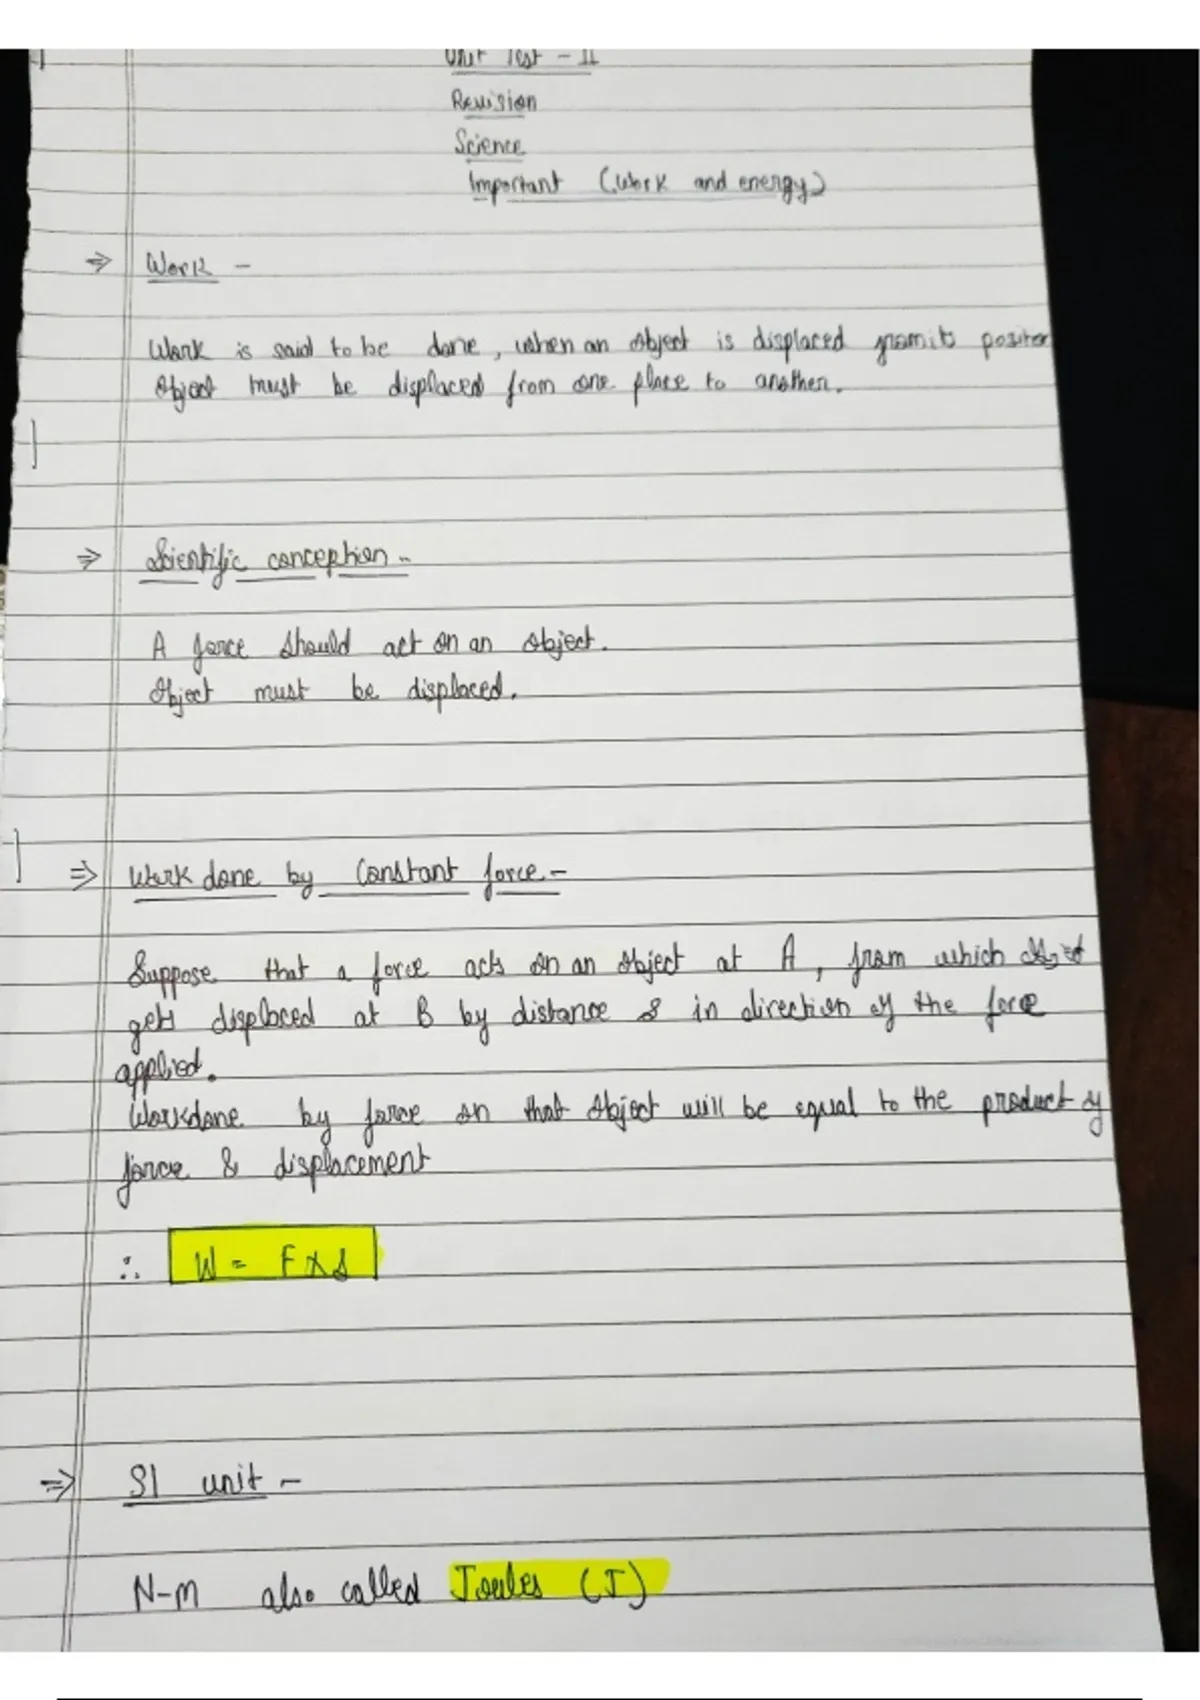 Unit Test - II
Revision
Science
Important (Work and energy)
⇒ Work -
Work is said to be done, when an object is displaced from its position
Object must be displaced from one place to another.
⇒ Scientific conception -
A force should act on an object.
Object must be displaced.
⇒ Work done by Constant force -
Suppose that a force acts on an object at A, from which object
gets displaced at B by distance s in direction of the force
applied.
Workdone by force on that object will be equal to the product of
force & displacement
∴ W = F x s
⇒ SI unit -
N-m also called Joules (J)